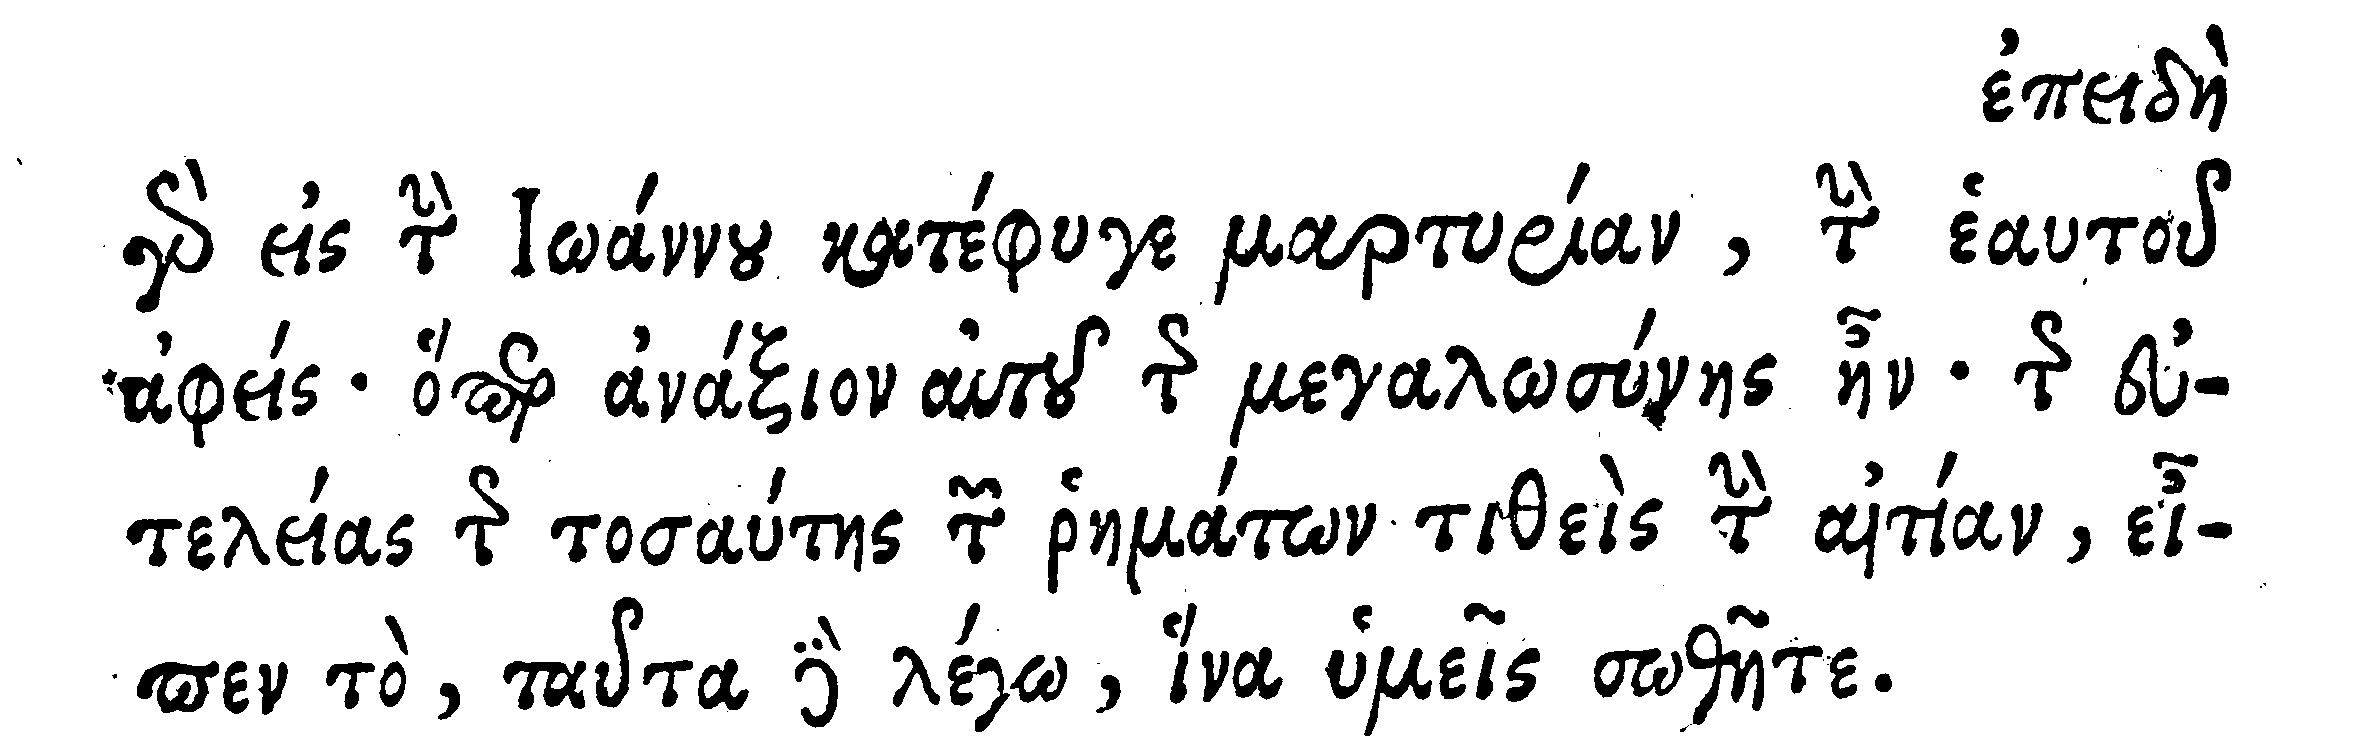 ἐπειδὴ
γὰρ εἰς τὴν Ἰωάννου κατέφυγε μαρτυρίαν, τὴν ἑαυτοῦ
ἀφείς· ὅπερ ἀνάξιον αὐτοῦ τῆς μεγαλωσύνης ἦν· τῆς εὐ-
τελείας τῆς τοσαύτης τῶν ῥημάτων τιθεὶς τὴν αἰτίαν, εἶ-
πεν τὸ, ταῦτα δὲ λέγω, ἵνα ὑμεῖς σωθῆτε.